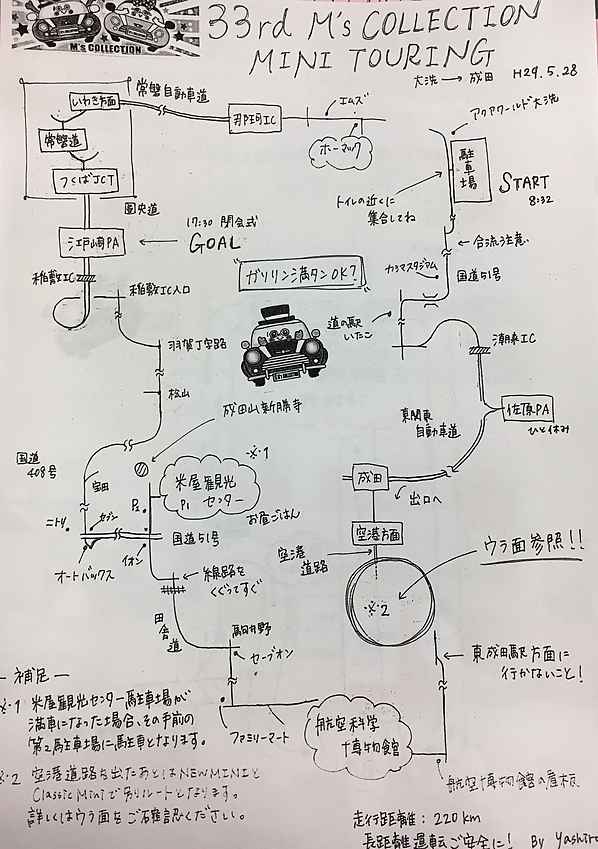 33rd M's COLLECTION
MINI TOURING
M's COLLECTION
大洗 → 成田 H29.5.28
常磐自動車道
いわき方面
常磐道
つくばJCT
圏央道
那珂IC
エムズ
ホーマック
アクアワールド大洗
駐車場
START
8:32
トイレの近くに
集合してね
17:30 閉会式
GOAL
江戸崎PA
合流注意
国道51号
カシマスタジアム
ガソリン満タンOK?
稲敷IC
稲敷IC入口
道の駅
いたこ
潮来IC
羽賀丁字路
松山
成田山新勝寺
東関東
自動車道
佐原PA
ひと休み
国道
408号
※1
米屋観光
P1 センター
P2
お昼ごはん
成田
出口へ
空港方面
ニトリ
セブン
国道51号
イオン
オートバックス
空港
道路
ウラ面参照!!
線路を
くぐってすぐ
※2
田舎道
駒井野
セーブオン
東成田駅方面に
行かないこと!
ファミリーマート
航空科学
博物館
航空博物館の看板
― 補足 ―
※1 米屋観光センター駐車場が
満車になった場合、その手前の
第2駐車場に駐車となります。
※2 空港道路を出たあとはNEW MINIと
Classic Miniで別ルートとなります。
詳しくはウラ面をご確認ください。
走行距離:220km
長距離運転ご安全に! By Yashiro